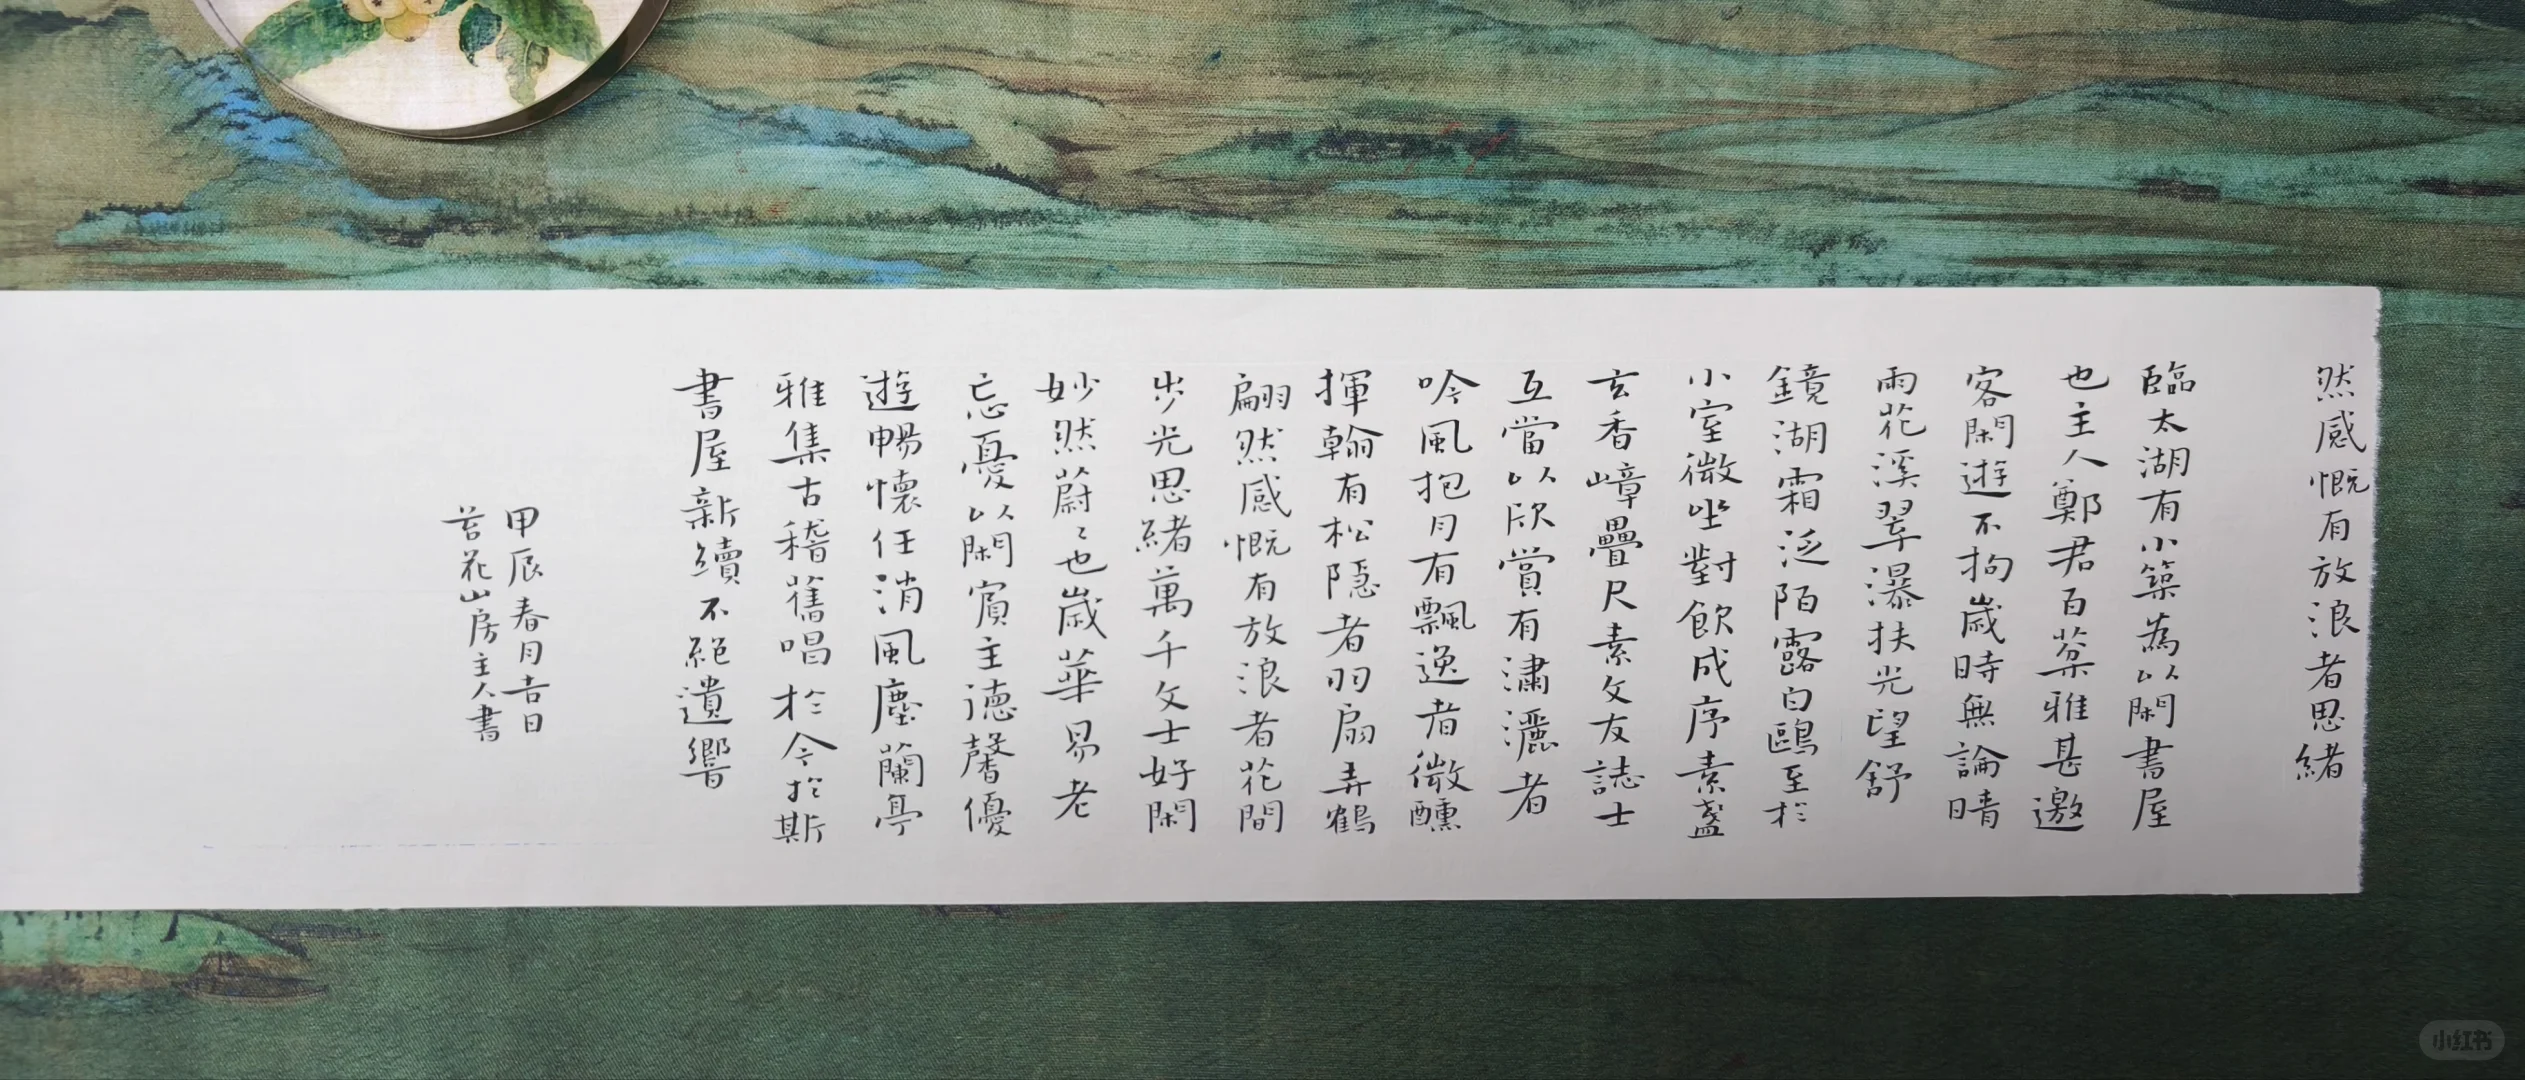 然感慨有放浪者思緒
臨太湖有小築為以閑書屋
也主人鄭君百棻雅甚邀
客閑遊不拘歲時無論晴
雨花溪翠瀑扶光望舒
鏡湖霜泛陌露白鷗至於
小室微坐對飲成序素盞
玄香嶂疊尺素文友誌士
互當以欣賞有瀟灑者
吟風抱月有飄逸者微醺
揮翰有松隱者羽扇弄鶴
翩然感慨有放浪者花間
步光思緒萬千文士好閑
妙然蔚々也歲華易老
忘憂以閑賓主德馨優
遊暢懷任消風塵蘭亭
雅集古稽舊唱於今於斯
書屋新續不絕遺響
甲辰春月吉日
苔花山房主人書
小红书